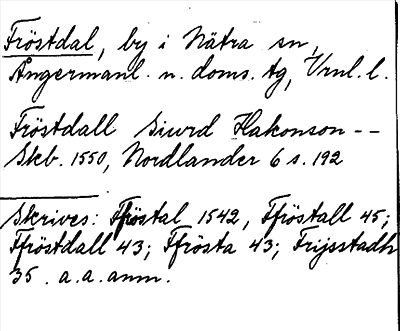 Fröstdal, by i Nätra sn,
Ångermanl. n. doms. tg, Vrnl. l.
Fröstdall Siurd Hakonson --
Skb. 1550, Nordlander 6 s. 192
Skrives: Ffröstal 1542, Ffröstall 45;
Ffröstdall 43; Ffrösta 43; Frijsstadh
35. a.a. anm.